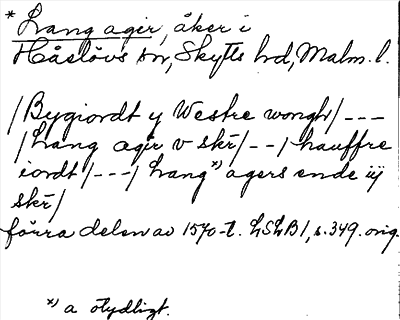 * Lang agir, åker i
Håslövs sn, Skytts hd, Malm. l.
/Bygiordt y Westre wongh/---
/Lang agir v skr̄/--/hauffre
iordt/---/Lang x) agers ende iij
skr̄/
förra delen av 1570-t. LSLB1, s.349. orig.
x) a otydligt.